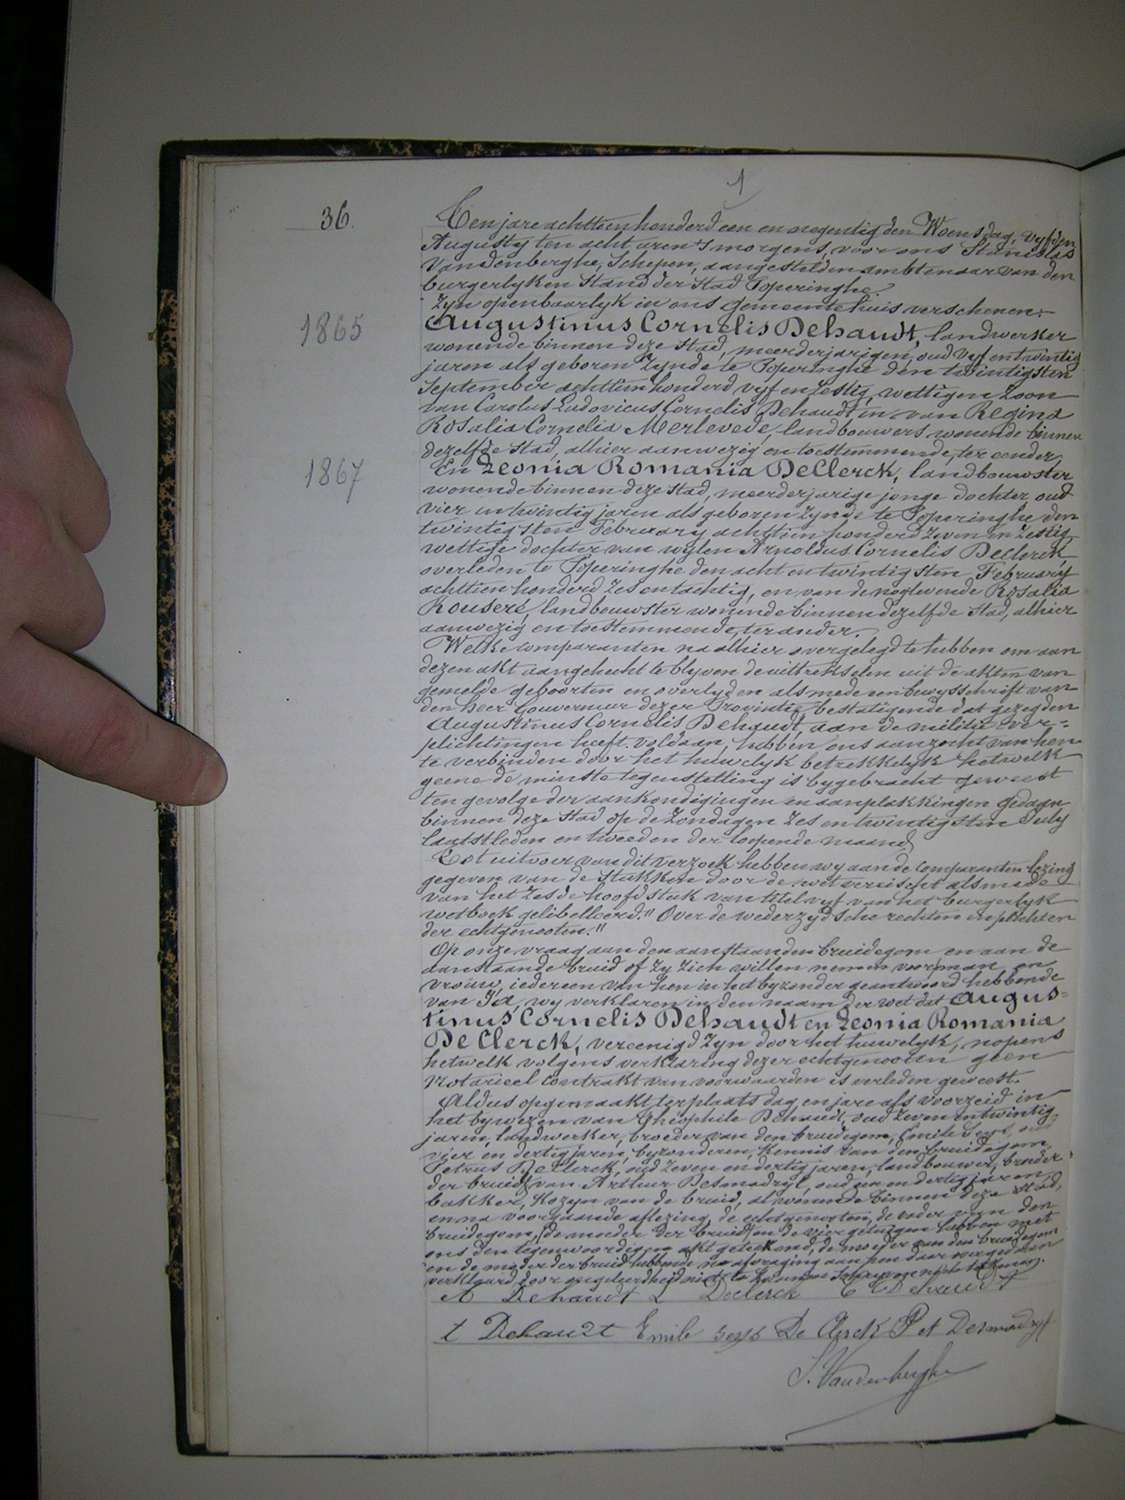 1
36.
Ten jare achttienhonderd een en negentig den Woensdag, vyfden
Augusty ten acht uren 's morgens, voor ons Stanislas
Vandenberghe, Schepen, aangestelden ambtenaar van den
burgerlyken stand der stad Poperinghe
Zyn openbaarlyk in ons gemeentehuis verschenen:
1865
Augustinus Cornelis Dehaudt, landwerker
wonende binnen deze stad, meerderjarigen, oud vyf en twintig
jaren als geboren zynde te Poperinghe den twintigsten
September achttien honderd vyf en zestig, wettigen zoon
van Carolus Ludovicus Cornelis Dehaudt en van Regina
Rosalia Cornelia Merlevede, landbouwers wonende binnen
dezelfde stad, alhier aanwezig en toestemmende, ter eender,
1867
En Leonia Romania DeClerck, landbouwster
wonende binnen deze stad, meerderjarige jonge dochter, oud
vier en twintig jaren als geboren zynde te Poperinghe den
twintigsten February achttien honderd zeven en zestig,
wettige dochter van wylen Arnoldus Cornelis DeClerck,
overleden te Poperinghe den acht en twintigsten February
achttien honderd zes en tachtig, en van de noglevende Rosalia
Kouseré, landbouwster wonende binnen dezelfde stad, alhier
aanwezig en toestemmende, ter ander.
Welke comparanten na alhier overgelegd te hebben om aan
dezen akt aangehecht te blyven de uittreksels uit de akten van
gemelde geboorten en overlyden alsmede een bewysschrift van
den heer Gouverneur dezer Provintie bestatigende dat gezegden
Augustinus Cornelis Dehaudt, aan de militie ver-
plichtingen heeft voldaan, hebben ons aanzocht van hen
te verbinden door het huwelyk betrekkelyk hetwelk
geene de minste tegenstelling is bygebracht geweest
ten gevolge der aankondigingen en aanplakkingen gedaan
binnen deze stad op de Zondagen zes en twintigsten July
laatstleden en tweeden der loopende maand,
Tot uitvoer van dit verzoek hebben wy aan de comparanten lezing
gegeven van de stukken door de wet vereischt alsmede
van het zesde hoofdstuk van titel vyf van het burgerlyk
wetboek gelibelleerd: "Over de wederzydsche rechten en plichten
der echtgenooten."
Op onze vraag aan den aanstaanden bruidegom en aan de
aanstaande bruid of zy zich willen nemen voor man en
vrouw, iedereen van hen in het byzonder geantwoord hebbende
van Ja, wy verklaren in den naam der wet dat Augus-
tinus Cornelis Dehaudt en Leonia Romania
DeClerck, vereenigd zyn door het huwelyk, nopens
hetwelk volgens verklaring dezer echtgenooten geen
notarieel contrakt van voorwaarden is verleden geweest.
Aldus opgemaakt ter plaats dag en jare als voorzeid in
het bywezen van Theophile Dehaudt, oud zeven en twintig
jaren, landwerker, broeder van den bruidegom, Emile Seys, oud
vier en dertig jaren, byzonderen, kennis van den bruidegom,
Petrus DeClerck, oud zeven en dertig jaren, landbouwer, broeder
der bruid, van Arthur Desmadryl, oud en dertig jaren
bakker, Kozyn van de bruid, al wonende binnen deze stad,
en na voorgaande aflezing, de echtgenooten, de vader van den
bruidegom, de moeder der bruid en de vier getuigen hebben met
ons den tegenwoordigen akt geteekend, de moeder van den bruidegom
en de moeder der bruid hebbende na afvraging aan hen daarover gedaan
verklaard door ongeleerdheid niet te kunnen schryven noch teekenen.
A Dehaudt L Declerck C L Dehaudt
t Dehaudt Emile Seys De Clerck Pet Desmadryl
S. Vandenberghe